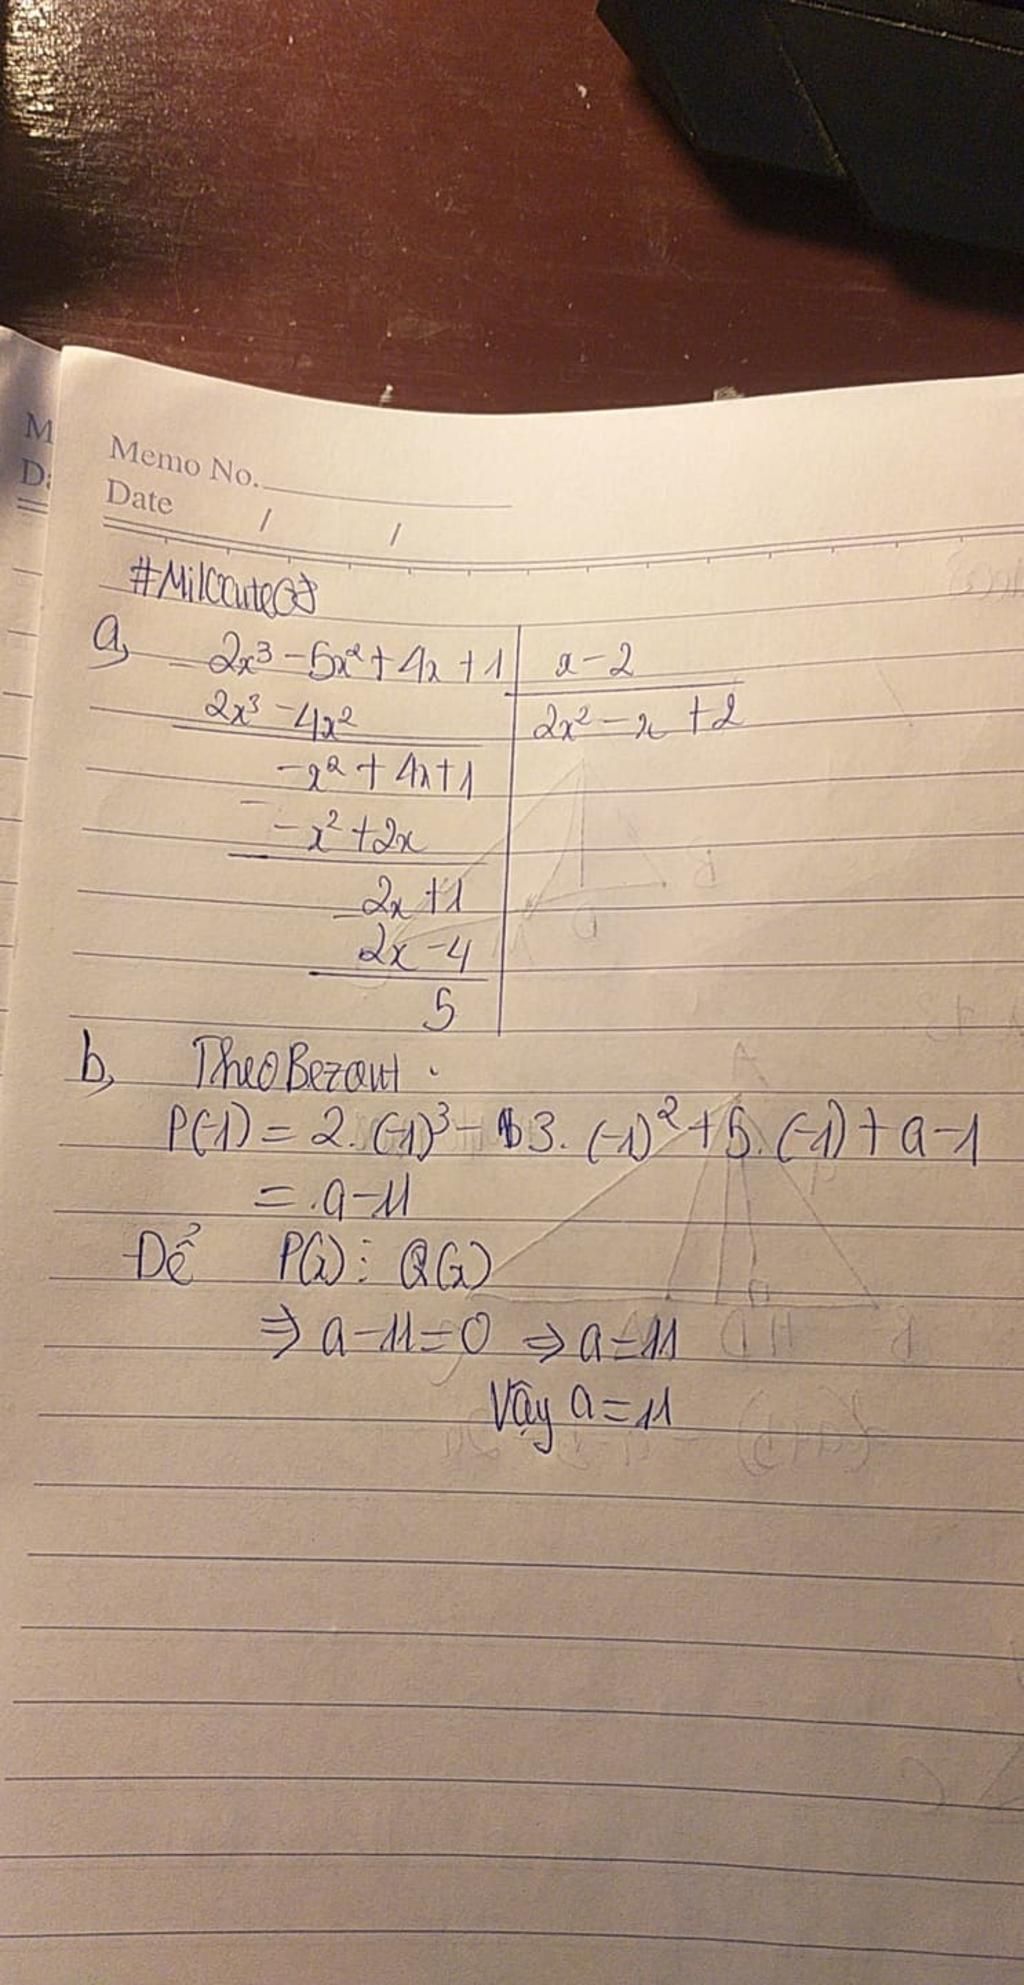 M
Memo No.
Da
Date / /
#MilCouteCS
a, 2x³ - 5x² + 4x + 1 | x - 2
2x³ - 4x² | 2x² - x + 2
-x² + 4x + 1
-x² + 2x
2x + 1
2x - 4
5
b, Theo Bezout.
P(-1) = 2. (-1)³ - 3. (-1)² + 5. (-1) + a - 1
= a - 11
Để P(x) ⋮ Q(x)
⇒ a - 11 = 0 ⇒ a = 11
Vậy a = 11